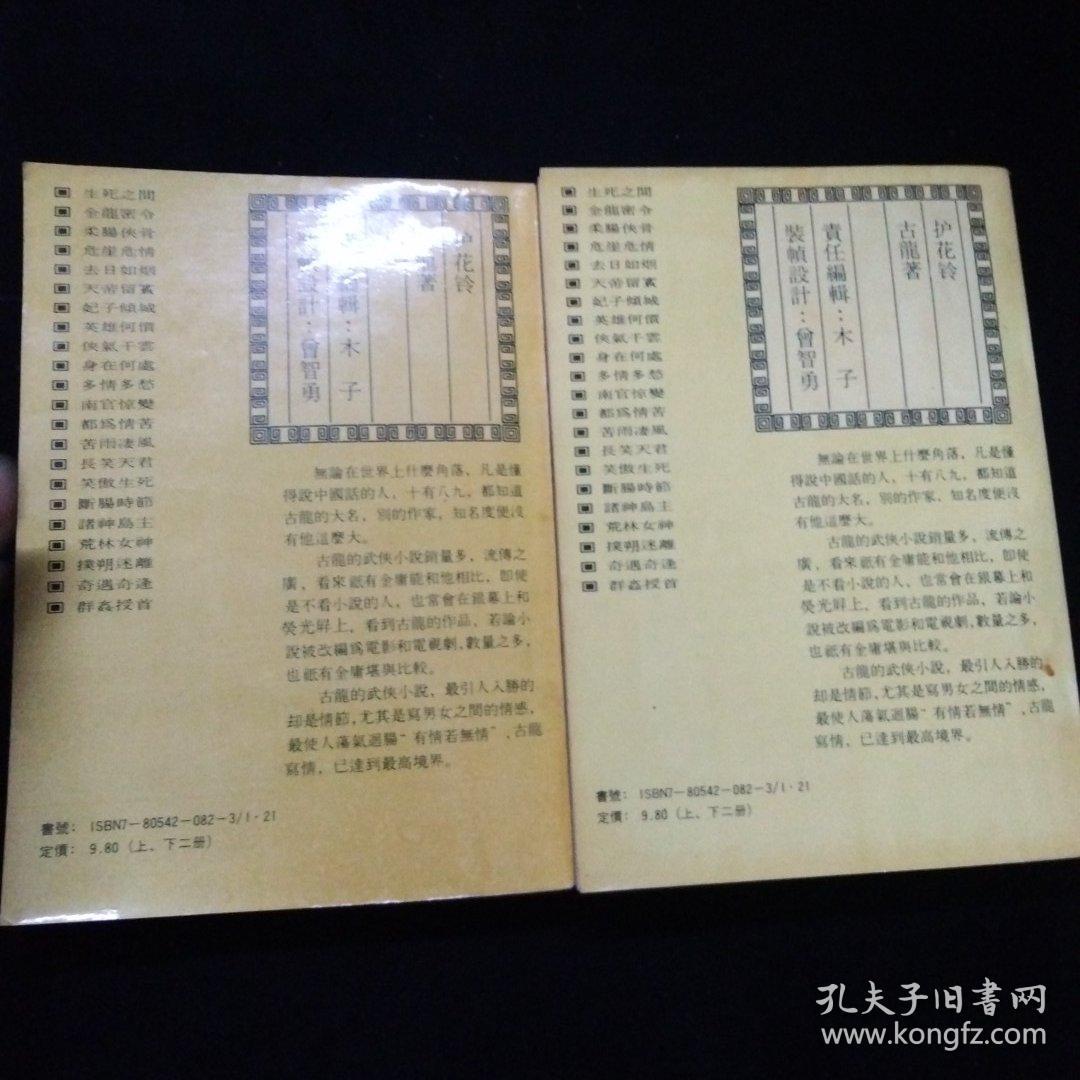 生死之間
金龍密令
柔腸俠骨
危崖危情
去日如烟
天帝留賓
妃子傾城
英雄何價
俠氣干雲
身在何處
多情多愁
南官惊變
都爲情苦
苦雨凄風
長笑天君
笑傲生死
斷腸時節
諸神島主
荒林女神
撲朔迷離
奇遇奇逢
群姦授首
护花铃
著
輯：木 子
設計：曾智勇
無論在世界上什麼角落，凡是懂
得說中國話的人，十有八九，都知道
古龍的大名，別的作家，知名度便没
有他這麼大。
古龍的武俠小說銷量多，流傳之
廣，看來祇有金庸能和他相比，即使
是不看小說的人，也常會在銀幕上和
熒光屏上，看到古龍的作品，若論小
說被改編爲電影和電視劇，數量之多，
也祇有金庸堪與比較。
古龍的武俠小說，最引人入勝的
却是情節，尤其是寫男女之間的情感，
最使人蕩氣迴腸“有情若無情”，古龍
寫情，已達到最高境界。
書號：ISBN7—80542—082—3/I·21
定價：9.80（上、下二册）
生死之間
金龍密令
柔腸俠骨
危崖危情
去日如烟
天帝留賓
妃子傾城
英雄何價
俠氣干雲
身在何處
多情多愁
南官惊變
都爲情苦
苦雨凄風
長笑天君
笑傲生死
斷腸時節
諸神島主
荒林女神
撲朔迷離
奇遇奇逢
群姦授首
护花铃
古龍著
責任編輯：木 子
裝幀設計：曾智勇
無論在世界上什麼角落，凡是懂
得說中國話的人，十有八九，都知道
古龍的大名，別的作家，知名度便没
有他這麼大。
古龍的武俠小說銷量多，流傳之
廣，看來祇有金庸能和他相比，即使
是不看小說的人，也常會在銀幕上和
熒光屏上，看到古龍的作品，若論小
說被改編爲電影和電視劇，數量之多，
也祇有金庸堪與比較。
古龍的武俠小說，最引人入勝的
却是情節，尤其是寫男女之間的情感，
最使人蕩氣迴腸“有情若無情”，古龍
寫情，已達到最高境界。
書號：ISBN7—80542—082—3/I·21
定價：9.80（上、下二册）
孔夫子旧書网
www.kongfz.com